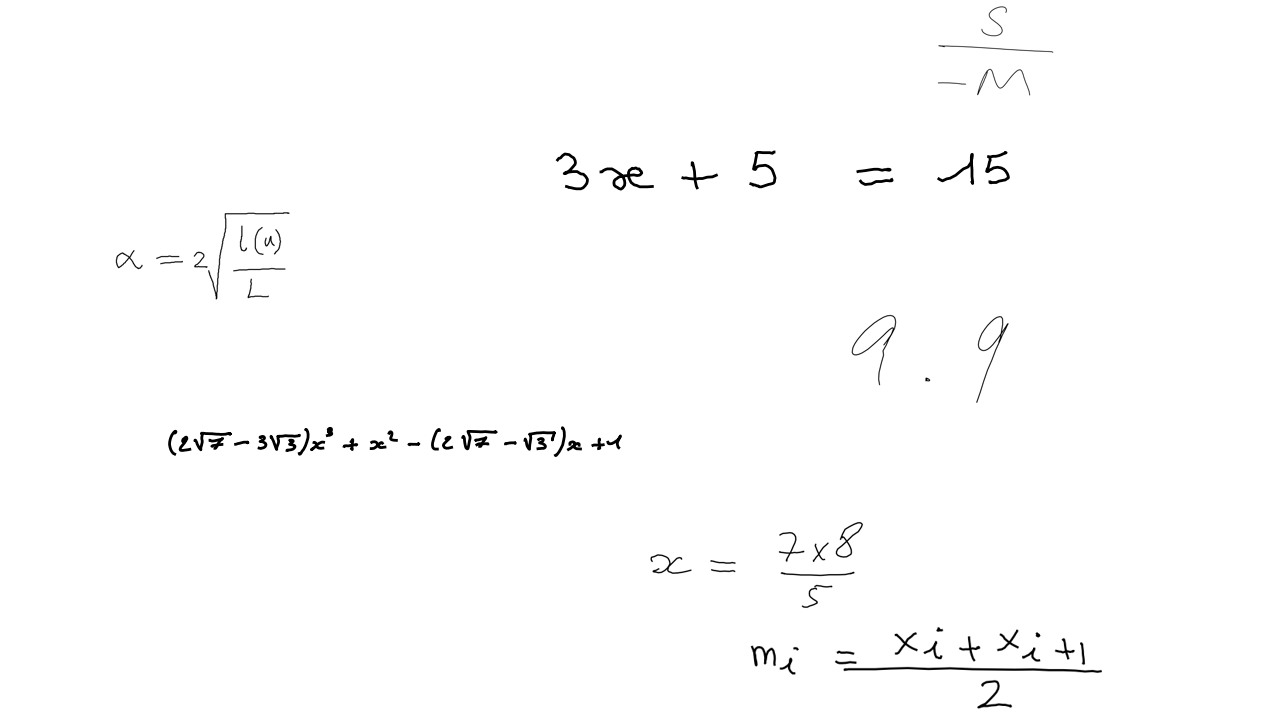 \frac{s}{-M}
3x + 5 = 15
\alpha = 2\sqrt{\frac{l(u)}{L}}
9 . 9
(2\sqrt{7} - 3\sqrt{3})x^3 + x^2 - (2\sqrt{7} - \sqrt{3})x + 1
x = \frac{7 \times 8}{5}
m_i = \frac{x_i + x_{i+1}}{2}